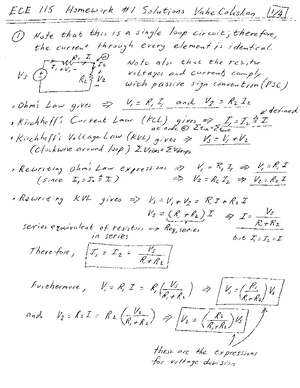 ECE 115 Homework #1 Solutions Vahe Caliskan 1/4
① Note that this is a single loop circuit; therefore,
the current through every element is identical.
Note also that the resistor
voltages and current comply
with passive sign convention (PSC)
• Ohm's Law gives ⇒ V₁ = R₁I₁ and V₂ = R₂I₂
• Kirchhoff's Current Law (KCL) gives ⇒ I₁ = I₂ ≜ I
defined
• Kirchhoff's Voltage Law (KVL) gives ⇒ Vs = V₁ + V₂
(clockwise around loop) ΣVrises = ΣVdrops
• Rewriting Ohm's Law expressions ⇒ V₁ = R₁I₁ ⇒ V₁ = R₁I
(since I₁ = I₂ ≜ I) ⇒ V₂ = R₂I₂ ⇒ V₂ = R₂I
• Rewriting KVL gives ⇒ Vs = V₁ + V₂ = R₁I + R₂I
Vs = (R₁ + R₂) I ⇒ I = Vs/(R₁+R₂)
series equivalent of resistors → Req, series
in series
but I₁ = I₂ = I
Therefore, I₁ = I₂ = Vs/(R₁+R₂)
Furthermore, V₁ = R₁I = R₁(Vs/(R₁+R₂)) ⇒ V₁ = (R₁/(R₁+R₂))Vs
and V₂ = R₂I = R₂(Vs/(R₁+R₂)) ⇒ V₂ = (R₂/(R₁+R₂))Vs
these are the expressions
for voltage division